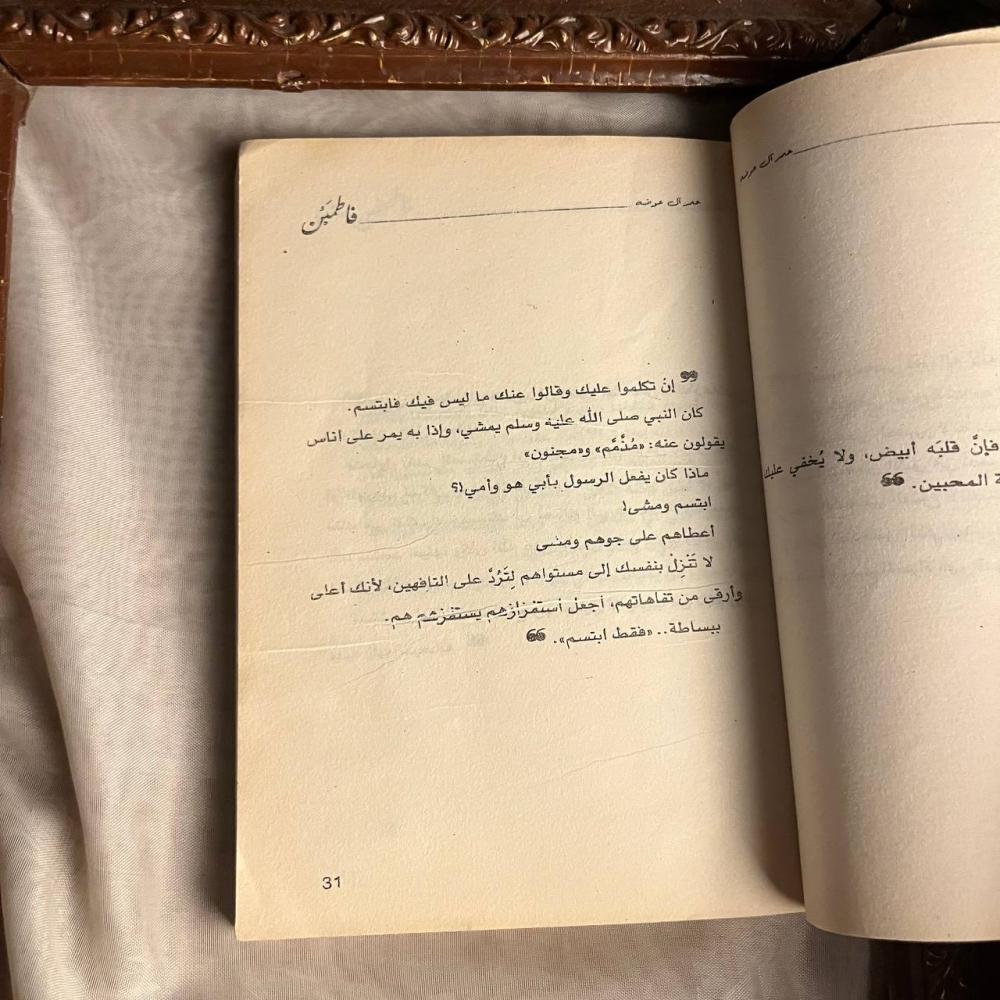 فاطمئن
إنْ تكلموا عليك وقالوا عنك ما ليس فيك فابتسم.
كان النبي صلى الله عليه وسلم يمشي، وإذا به يمر على أناس
يقولون عنه: «مُذَّمَّم» و«مجنون»
ماذا كان يفعل الرسول بأبي هو وأمي!؟
ابتسم ومشى!
أعطاهم على جوهم ومشى
لا تَنزِلْ بنفسك إلى مستواهم لِتَرُدَّ على التافهين، لأنك أعلى
وأرقى من تفاهاتهم، أجعل أستفزازهم يستفزهم هم.
ببساطة.. «فقط ابتسم».
31
فإنَّ قلبَه أبيض، ولا يُخفي عليك
المحبين.